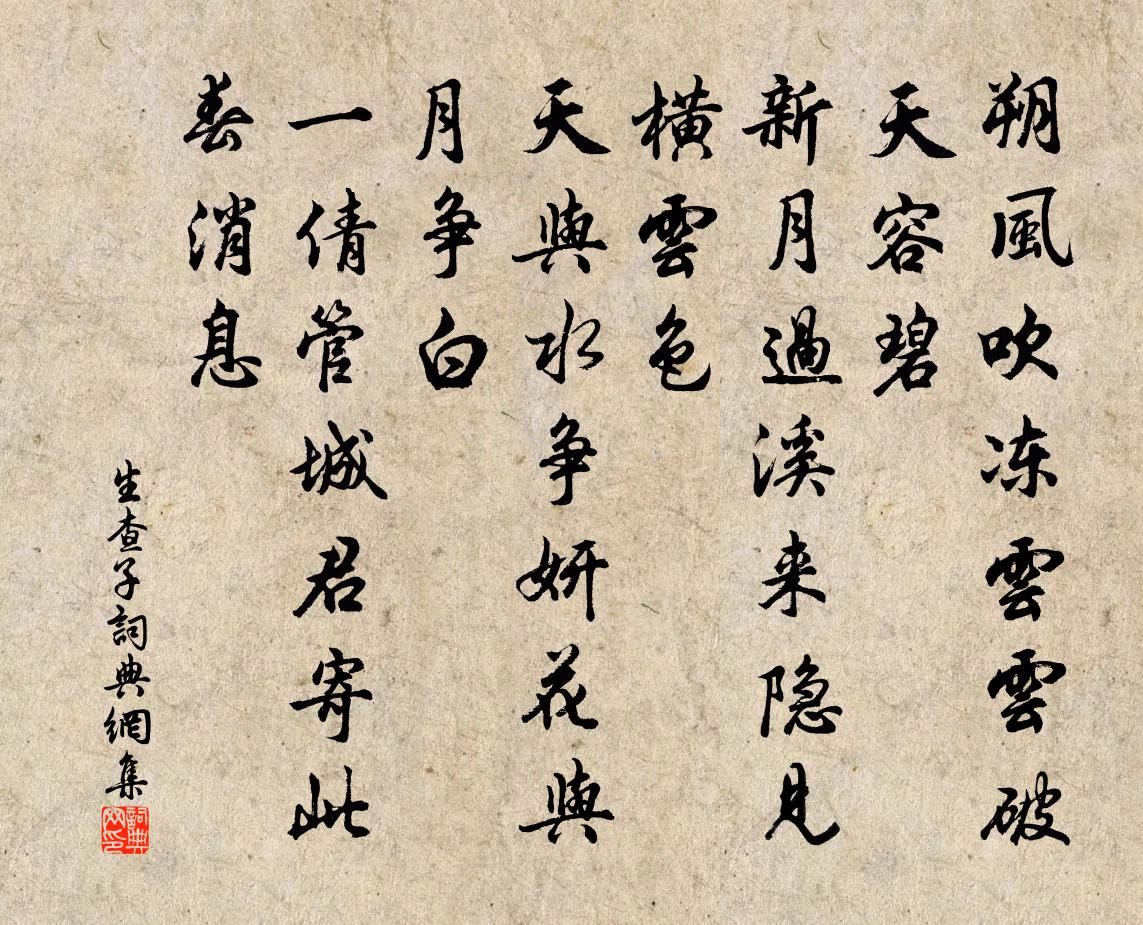 朔風吹冻雲雲破
天容碧
新月過溪来隐見
橫雲色
天與水争妍花與
月争白
一倩管城君寄此
春消息
生查子詞典網集
詞典
网印